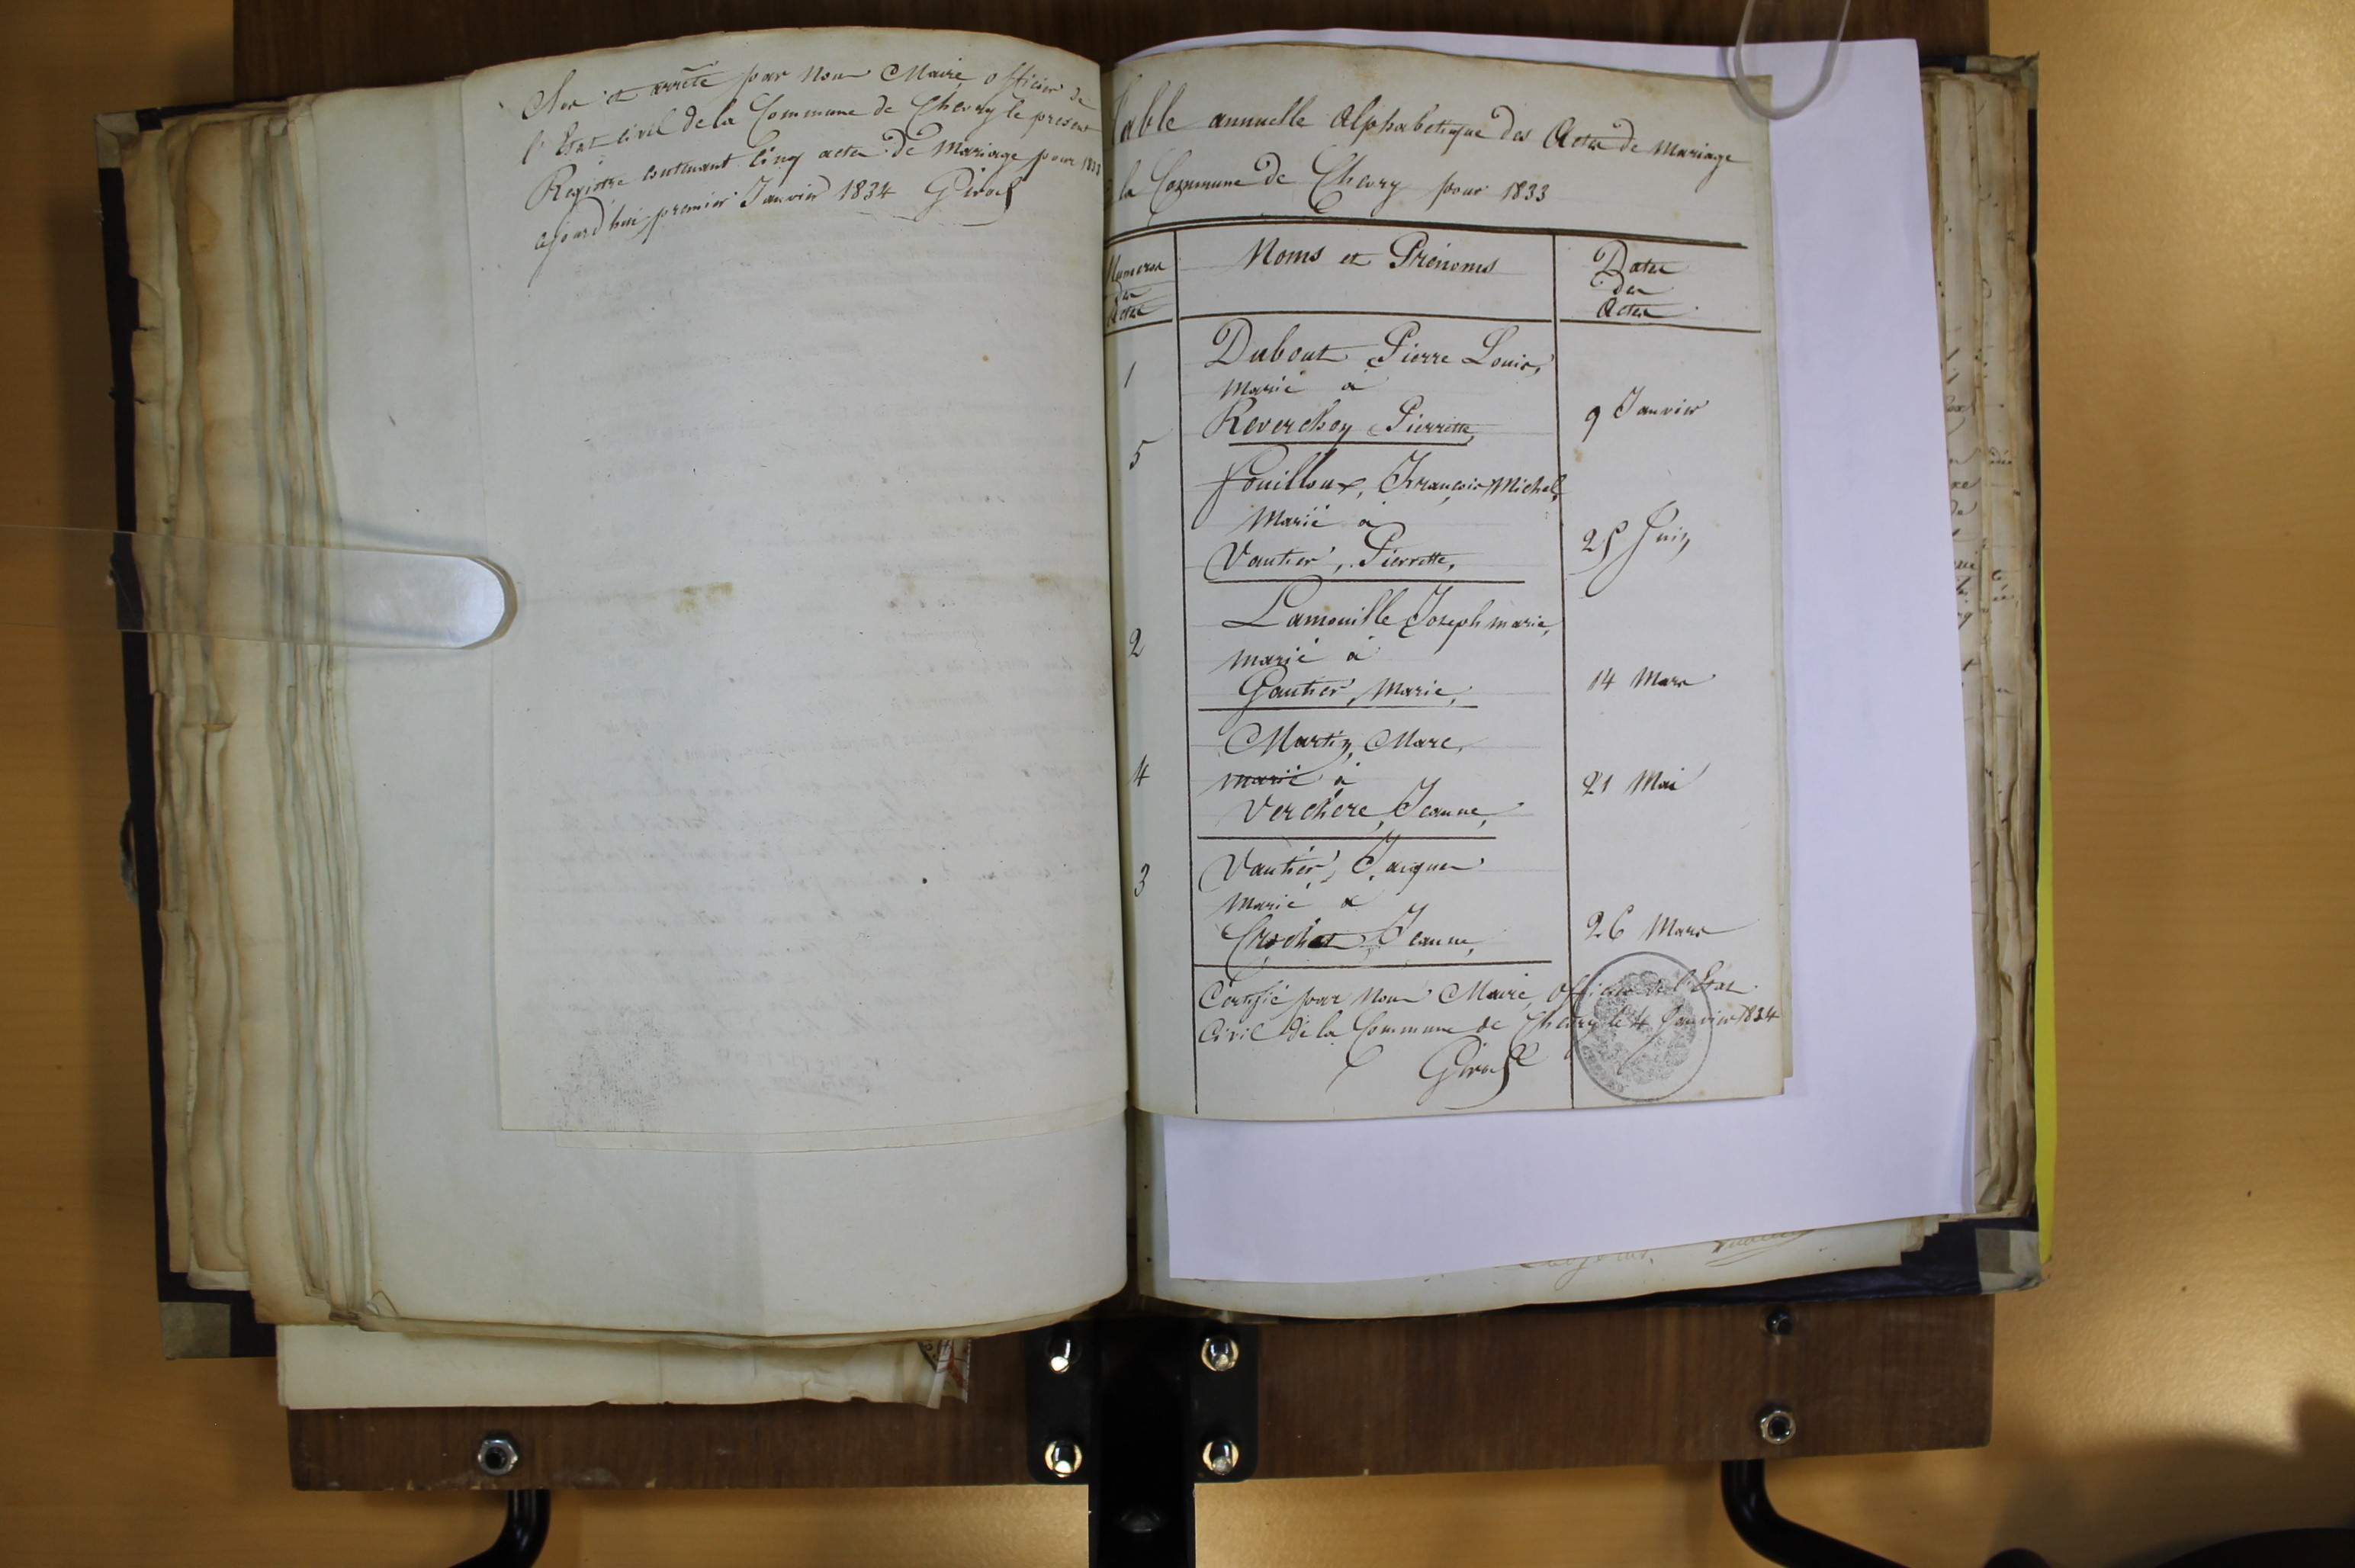 Clos et arrêté par Nous Maire, officier de
l'Etat civil de la Commune de Chevry le present
Registre contenant Cinq actes de Mariage pour 1833
aujourd'hui premier Janvier 1834
Table annuelle Alphabetique des Actes de Mariage
la Commune de Chevry pour 1833
Numeros
des
Actes
Noms et Prénoms
Dates
des
Actes
1
Dubout Pierre Louis,
marié à
Reverchon Pierrette,
9 Janvier
5
Fouilloux, François Michel,
Marié à
Vautier, Pierrette,
25 Juin
2
Lamouille Joseph marie,
marié à
Gautier, Marie,
14 Mars
4
Martin, Marc,
marié à
Verchère, Jeanne,
21 Mai
3
Vautier, Jacques
Marié à
Crochat, Jeanne,
26 Mars
Certifié par Nous Maire, Officier de l'Etat
Civil de la Commune de Chevry le 4 Janvier 1834